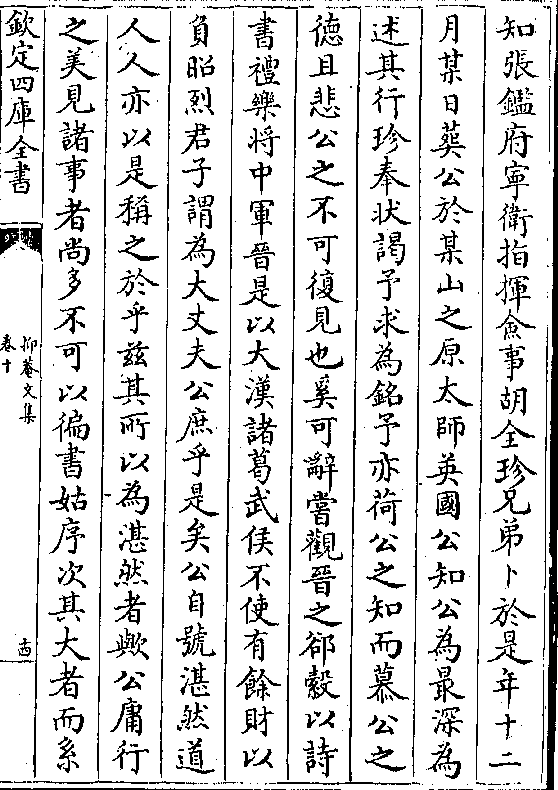 知張鑑府寧衛指揮僉事胡全珍兄弟卜於是年十二
月某日葬公於某山之原太師英國公知公為最深為
述其行珍奉状謁予求為銘予亦荷公之知而慕公之
徳且悲公之不可復見也奚可辭嘗觀晉之郤縠以詩
書禮樂将中軍晉是以大漢諸葛武侯不使有餘財以
負昭烈君子謂為大丈夫公庶乎是矣公自號湛然道
人人亦以是稱之於乎兹其所以為湛然者歟公庸行
之美見諸事者尚多不可以徧書姑序次其大者而系
欽定四庫全書
抑菴文集
卷十